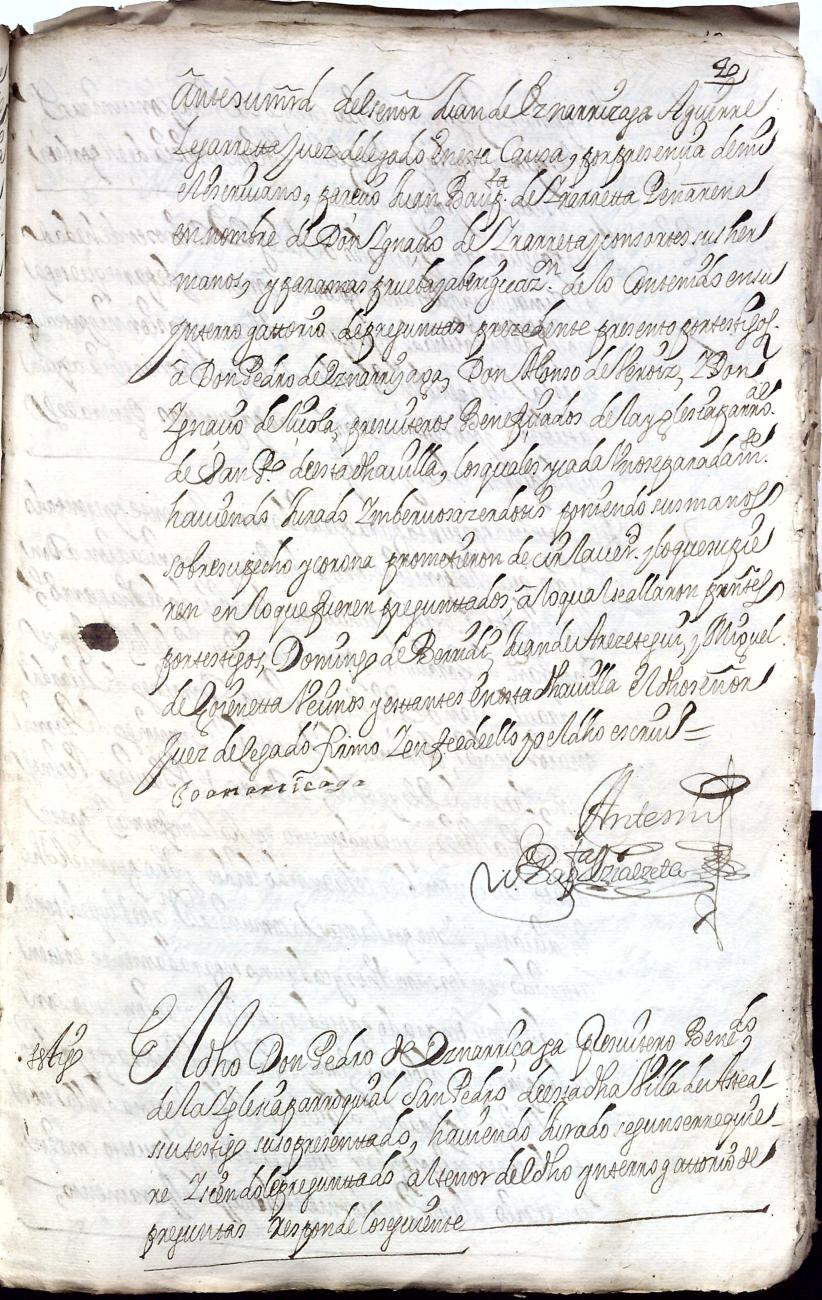 40
Ante su mrd del señor Juan de Eznarrizaga Aguirre
Lejarretta Juez delegado en esta Causa, y por presencia de mi
el escriuano, parecio Juan Baupta. de Ynarretta Peñarena
en nombre de Don Ygnacio de Ynarreta y consortes sus her
manos, y para mas prueba y aberiguazn. de lo Contenido en su
ynterrogattorio de preguntas prezedente presento por testigos.
â Don Pedro de Eznarrizaga, Don Alonso de Veroiz, Y Don
Ygnacio de presuiteros Benefiziados de la yglesia parrochal.
de San Po. de esta dha uilla, los quales y cada Vno separadamte.
hauiendo Jurado Ymberuo sazerdotis poniendo sus manos
sobre su pecho y corona prometieron decir la uerd. y lo que supie
ren en lo que fueren preguntados, â lo qual se allaron presentes
por testigos, Domingo de Juan de Arezetegui, y Miguel
de Gorenetta Vecinos y estantes en esta dha uilla el dho señor
Juez delegado firmo Y en fee dello yo el dho escriuo =
Joanarriçaga
Ante mi
Bapta
tsttigo
El dho Don Pedro de Oznarriçaga Presuitero Benefdo
de la Yglesia parroquial San Pedro de esta dha Villa de
su testigo suso presentado, hauiendo Jurado segun se requie
re Y siendole preguntado al tenor del dho ynterrogattorio de
preguntas Responde lo siguiente